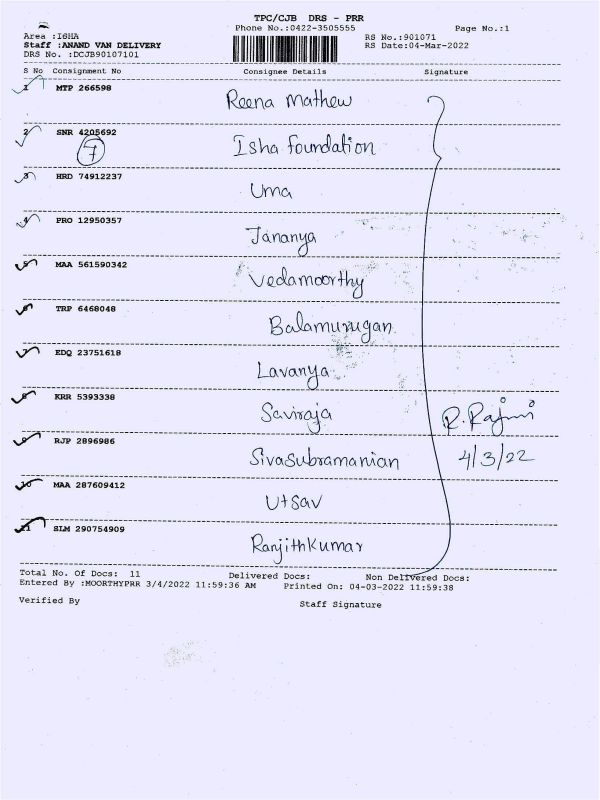 TPC/CJB DRS - PRR
Phone No.:0422-3505555 Page No.:1
Area :ISHA RS No.:901071
Staff :ANAND VAN DELIVERY RS Date:04-Mar-2022
DRS No. :DCJB90107101
S No Consignment No Consignee Details Signature
1 MTP 266598 Reena Mathew
2 SNR 4205692 Isha foundation
7
3 HRD 74912237 Uma
4 PRO 12950357 Jananya
5 MAA 561590342 Vedamoorthy
6 TRP 6468048 Balamurugan
7 EDQ 23751618 Lavanya
8 KRR 5393338 Saviraja R. Rajini
9 RJP 2896986 Sivasubramanian 4/3/22
10 MAA 287609412 Utsav
11 SLM 290754909 Ranjithkumar
Total No. Of Docs: 11 Delivered Docs: Non Delivered Docs:
Entered By :MOORTHYPRR 3/4/2022 11:59:36 AM Printed On: 04-03-2022 11:59:38
Verified By Staff Signature